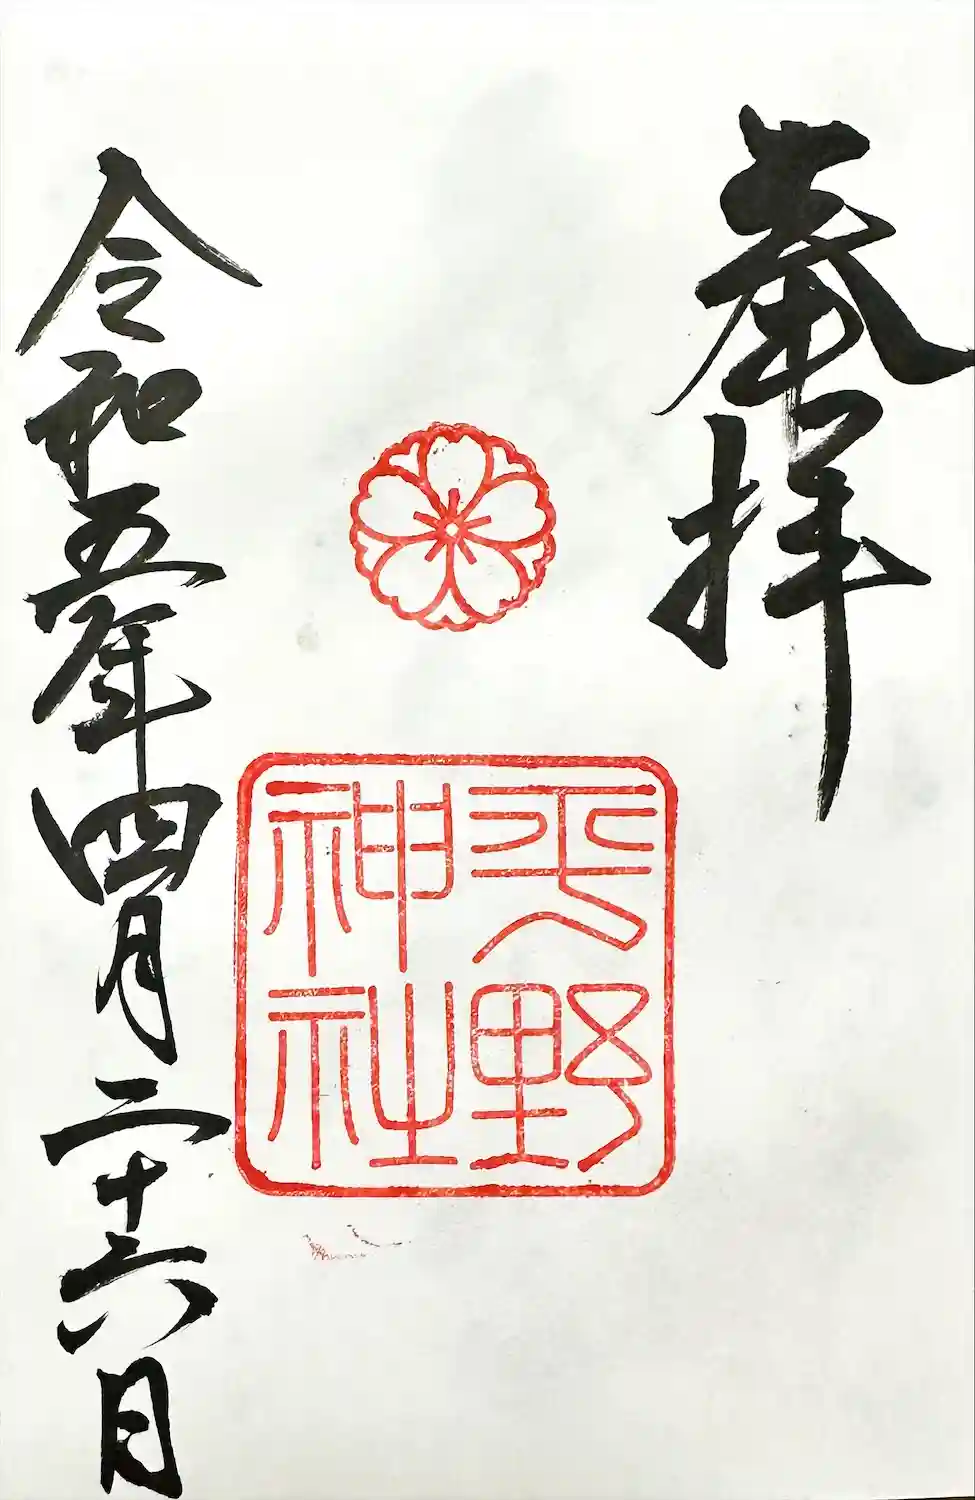 奉拝
平野
神社
令和五年四月二十六日